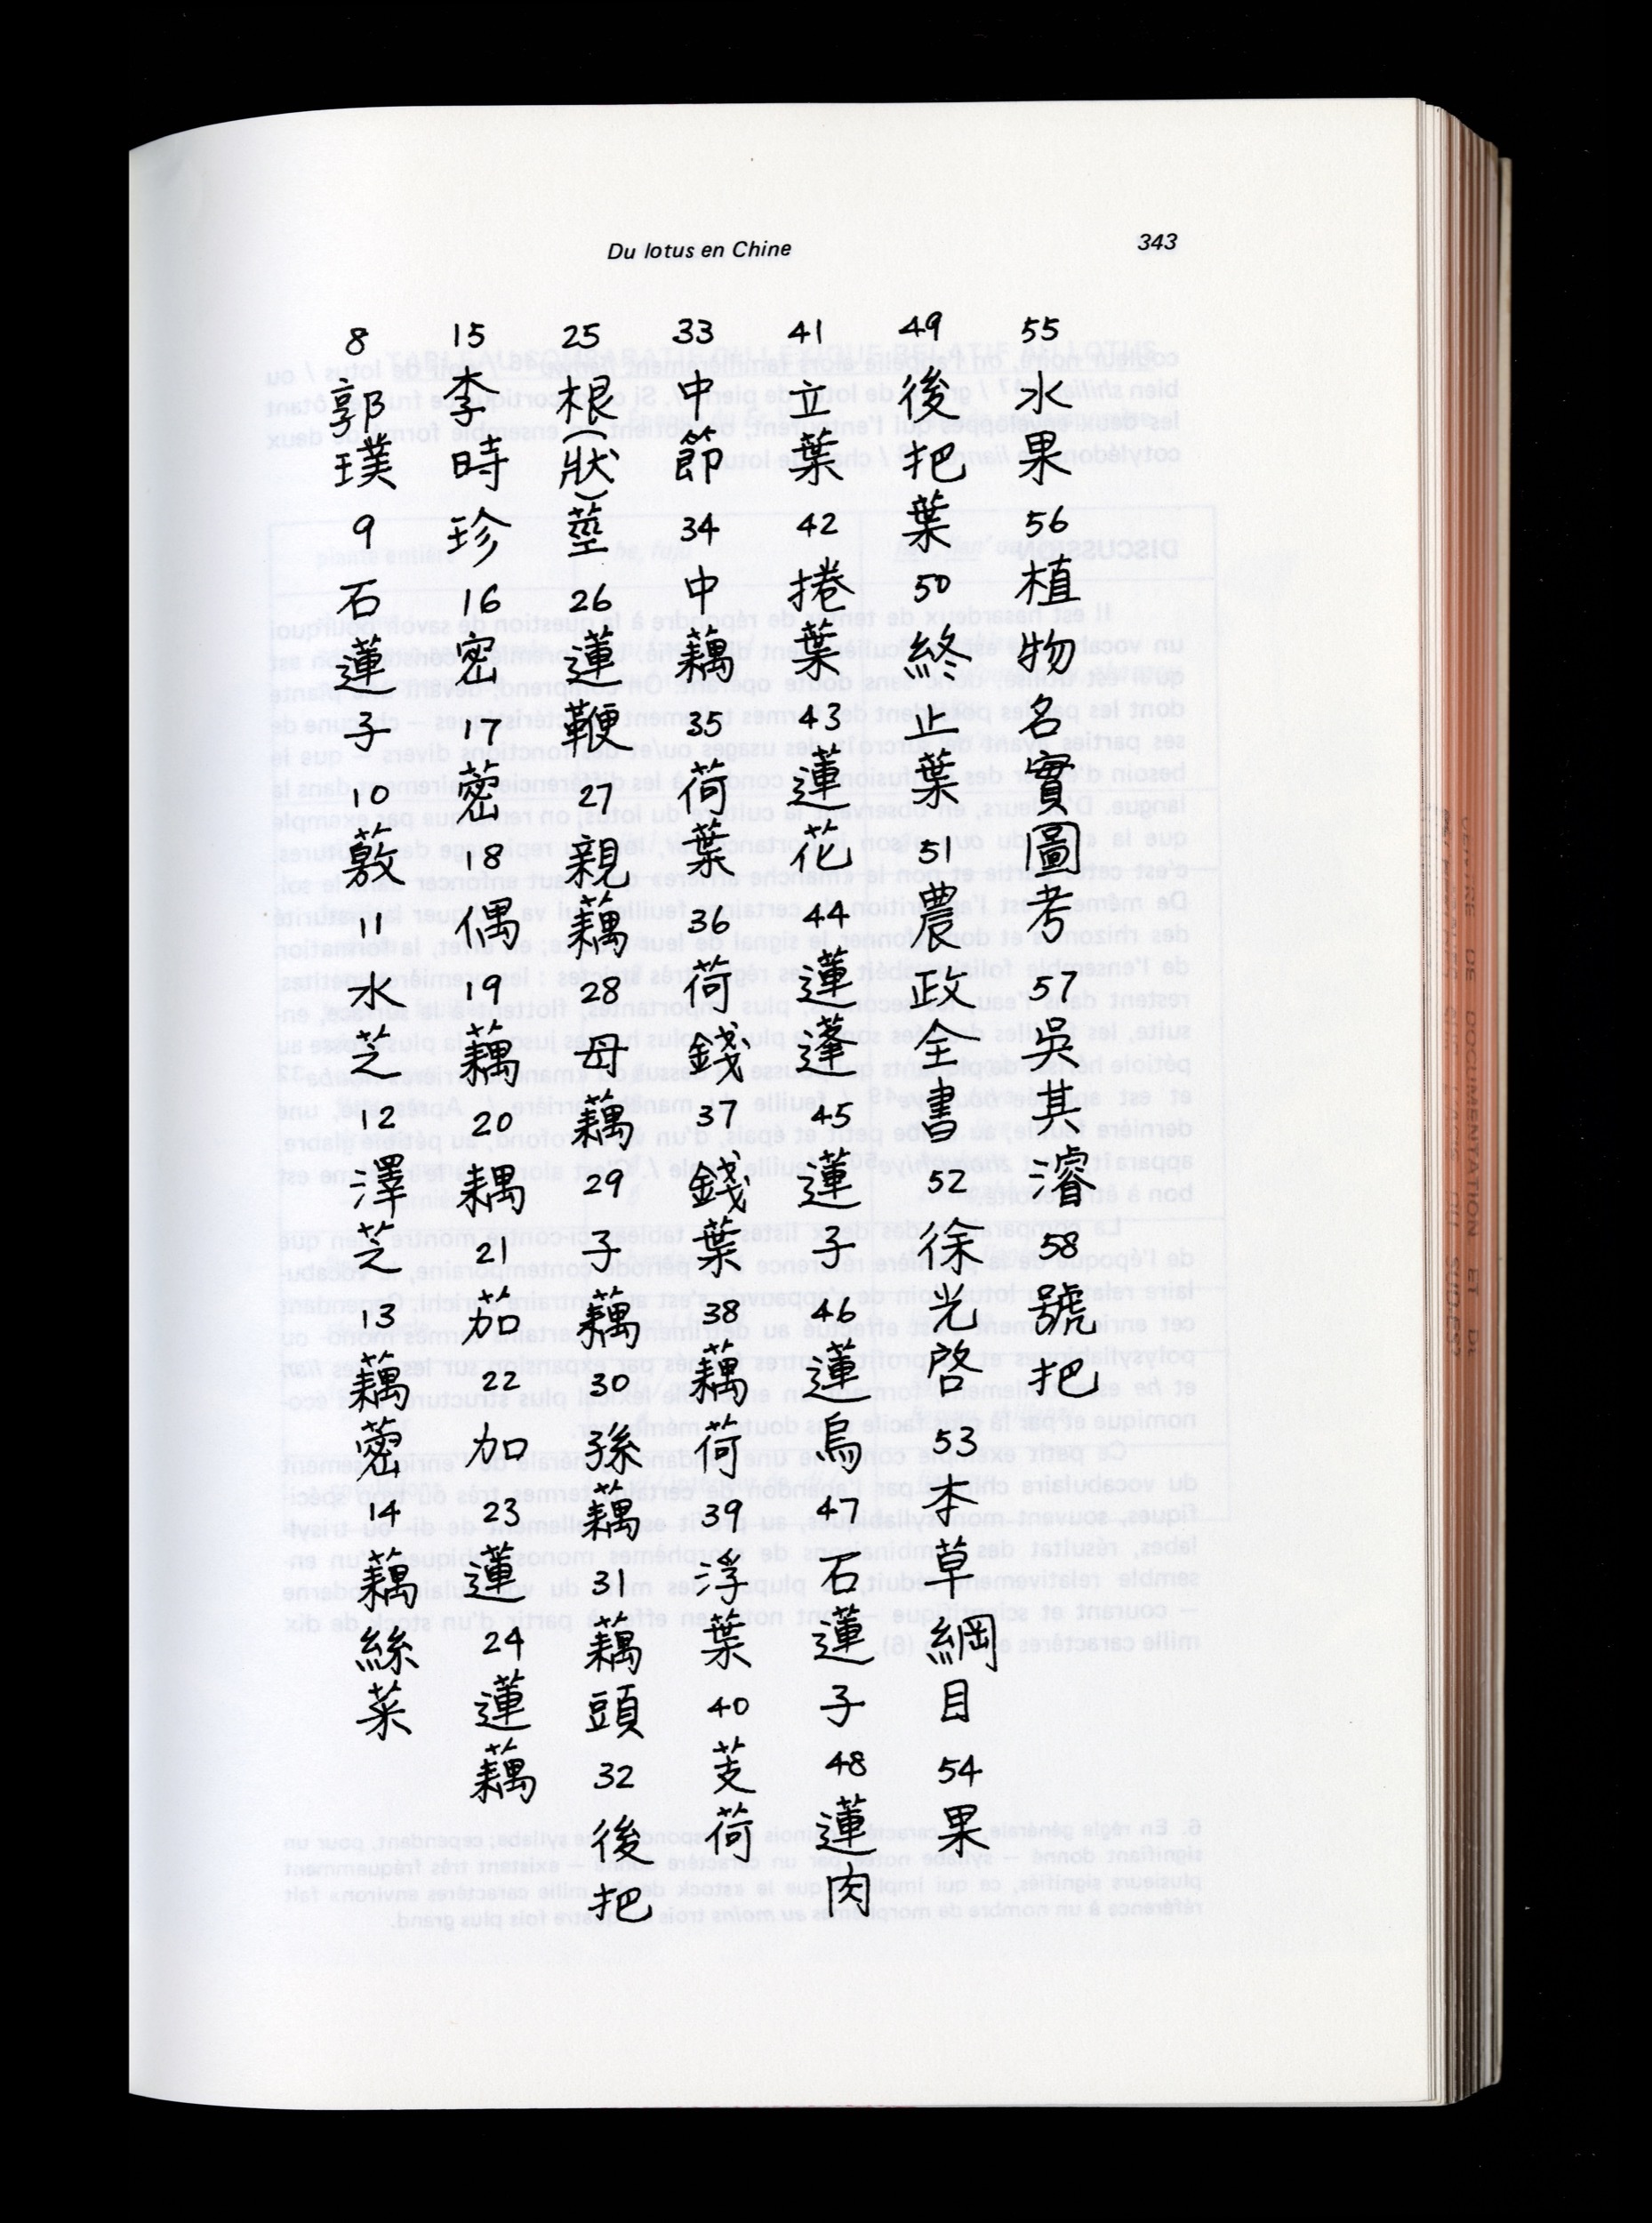 Du lotus en Chine
343
8 郭璞 9 石蓮子 10 蔜 11 水芝 12 澤芝 13 藕蔤 14 藕絲菜
15 李時珍 16 密 17 蔤 18 偶 19 藕 20 耦 21 茄 22 加 23 蓮 24 蓮藕
25 根(狀)莖 26 蓮鞭 27 親藕 28 母藕 29 子藕 30 孫藕 31 藕頭 32 後把
33 中節 34 中藕 35 荷葉 36 荷錢 37 錢葉 38 藕荷 39 浮葉 40 芰荷
41 立葉 42 捲葉 43 蓮花 44 蓮蓬 45 蓮子 46 蓮烏 47 石蓮子 48 蓮肉
49 後把葉 50 終止葉 51 農政全書 52 徐光啓 53 本草綱目 54 果
55 水果 56 植物名實圖考 57 吳其濬 58 號把